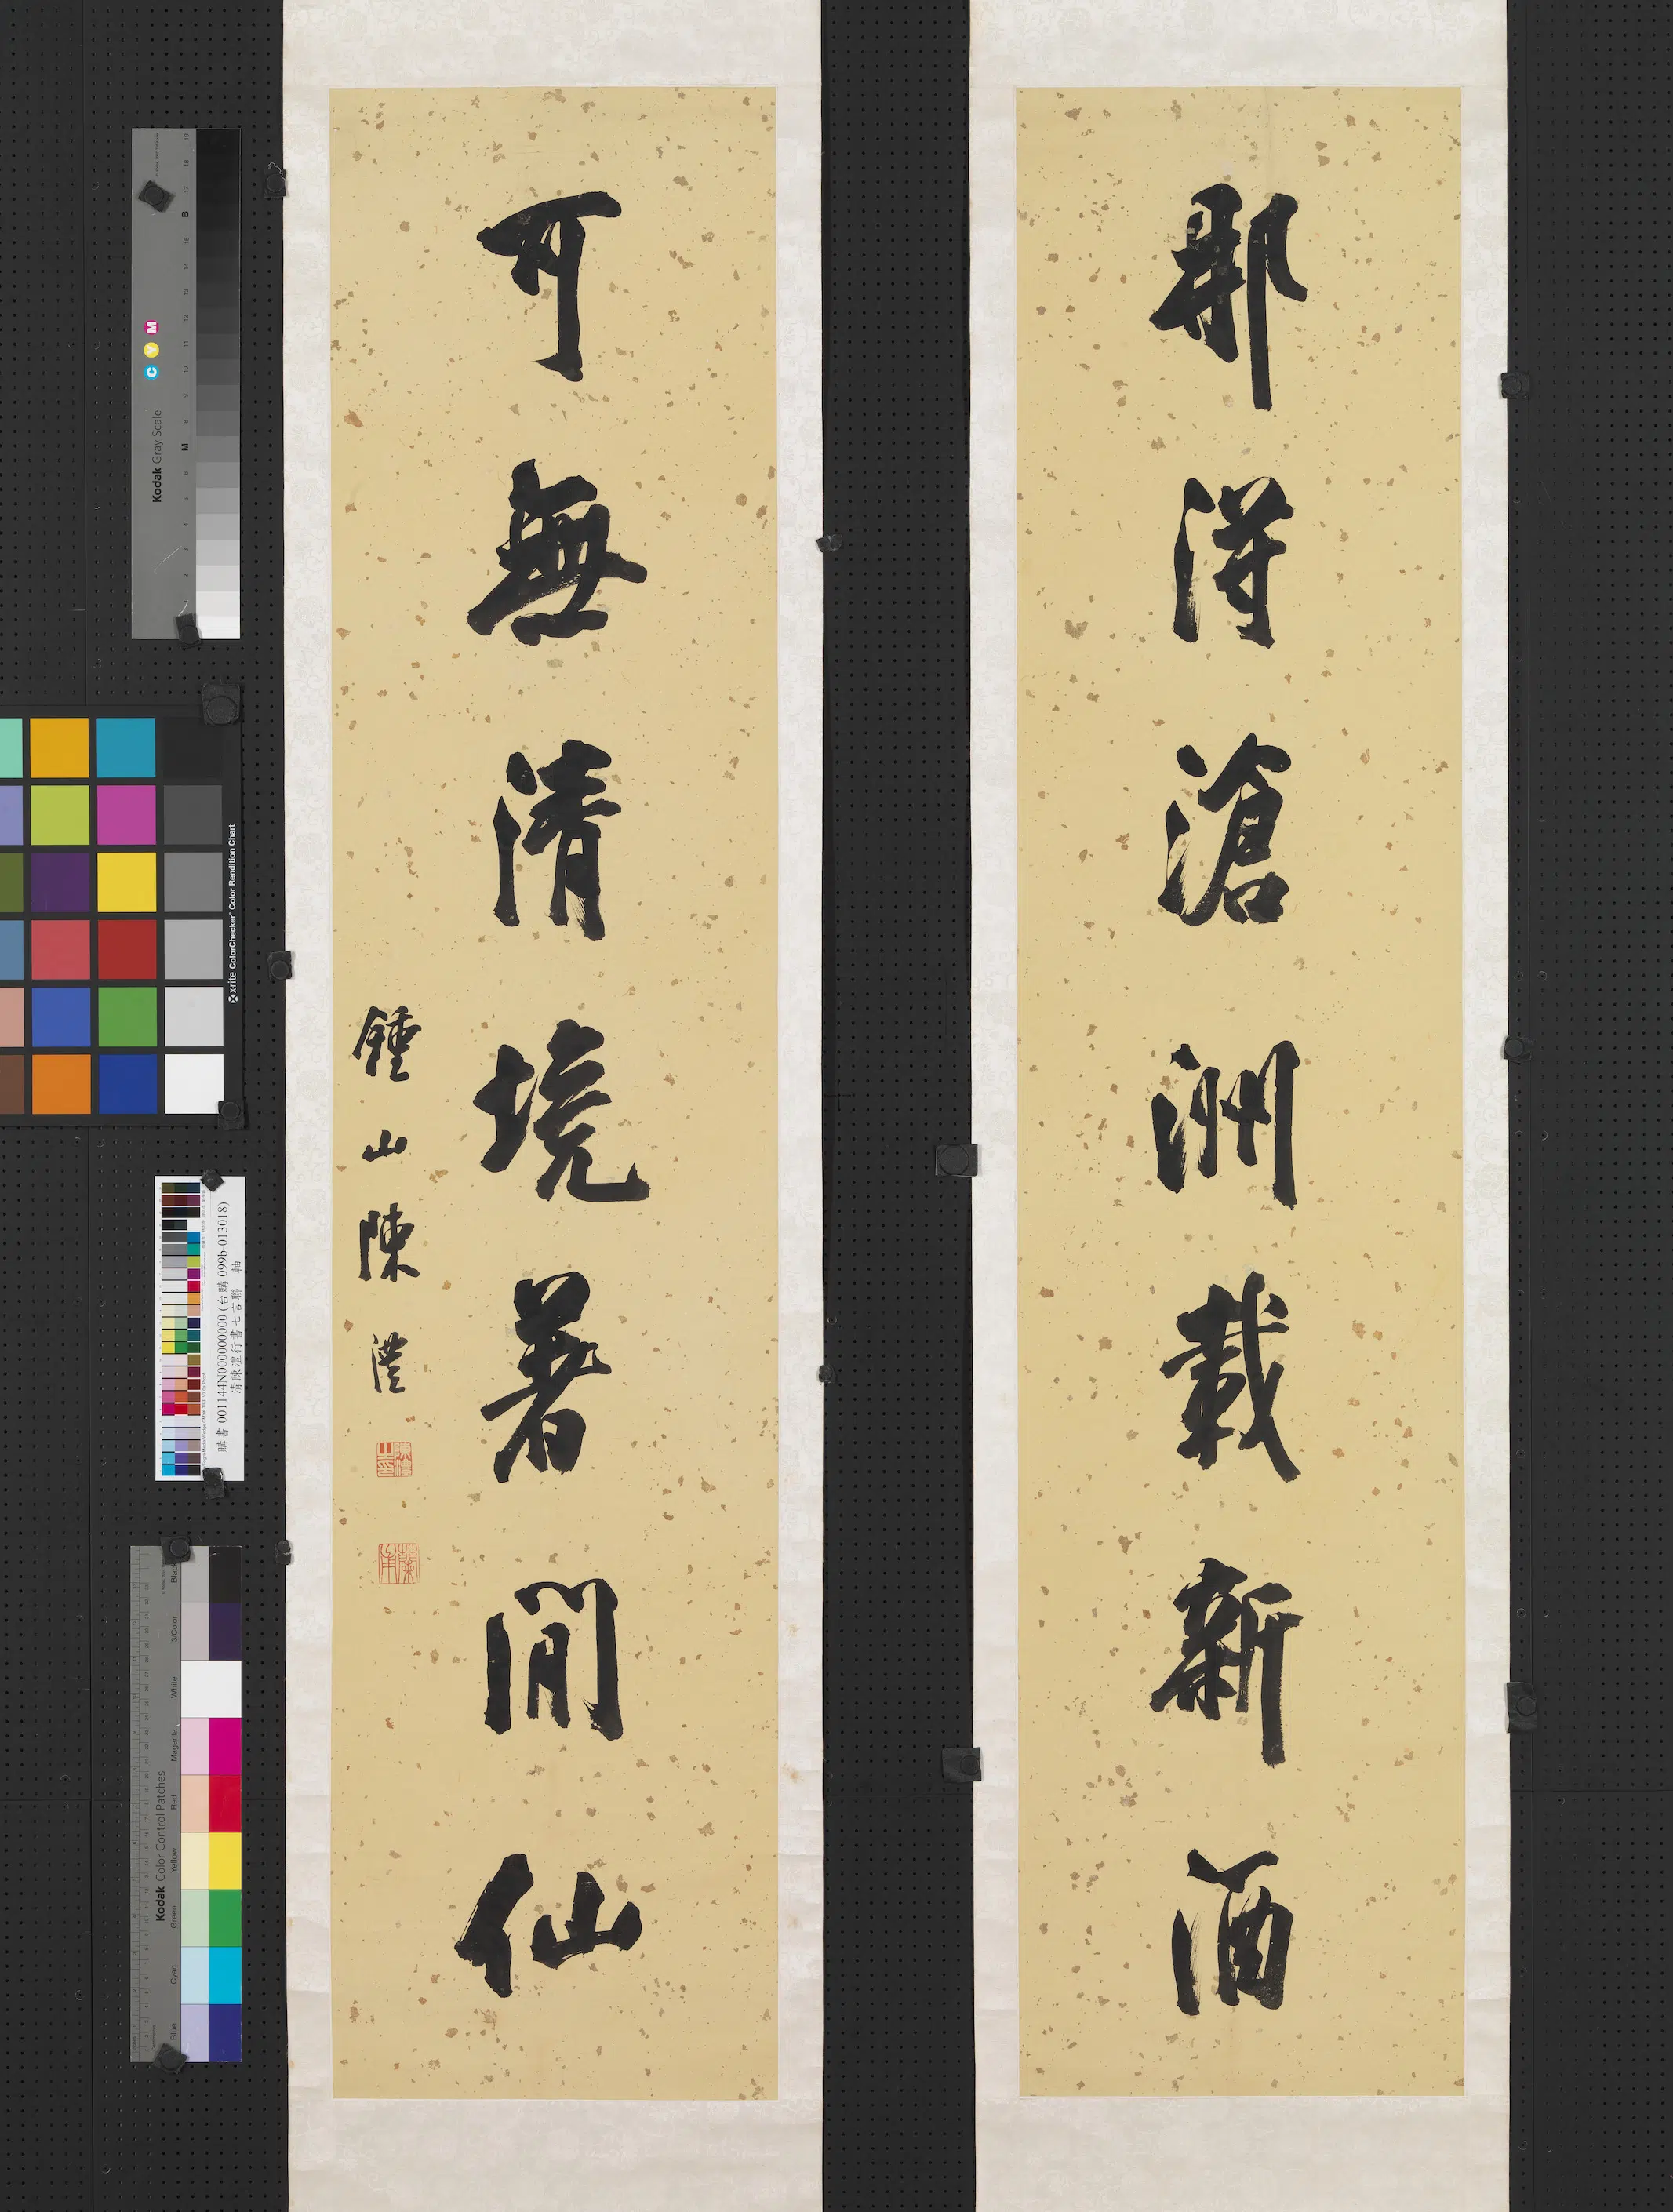 那得滄洲載新酒
可無清境著閒仙
鍾山陳澧
陳澧之印
蘭甫
Kodak Gray Scale
C Y M
x-rite ColorChecker Color Rendition Chart
購書 001144N000000000 (台購 099b-013018)
清陳澧行書七言聯 軸
Kodak Color Control Patches
Blue Cyan Green Yellow Red Magenta White 3/Color Black